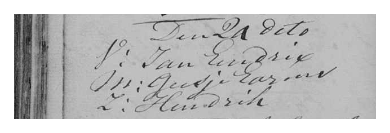 Den 2d dito
V: Jan Hendrix
M: Geesje Harms
Z: Hendrik